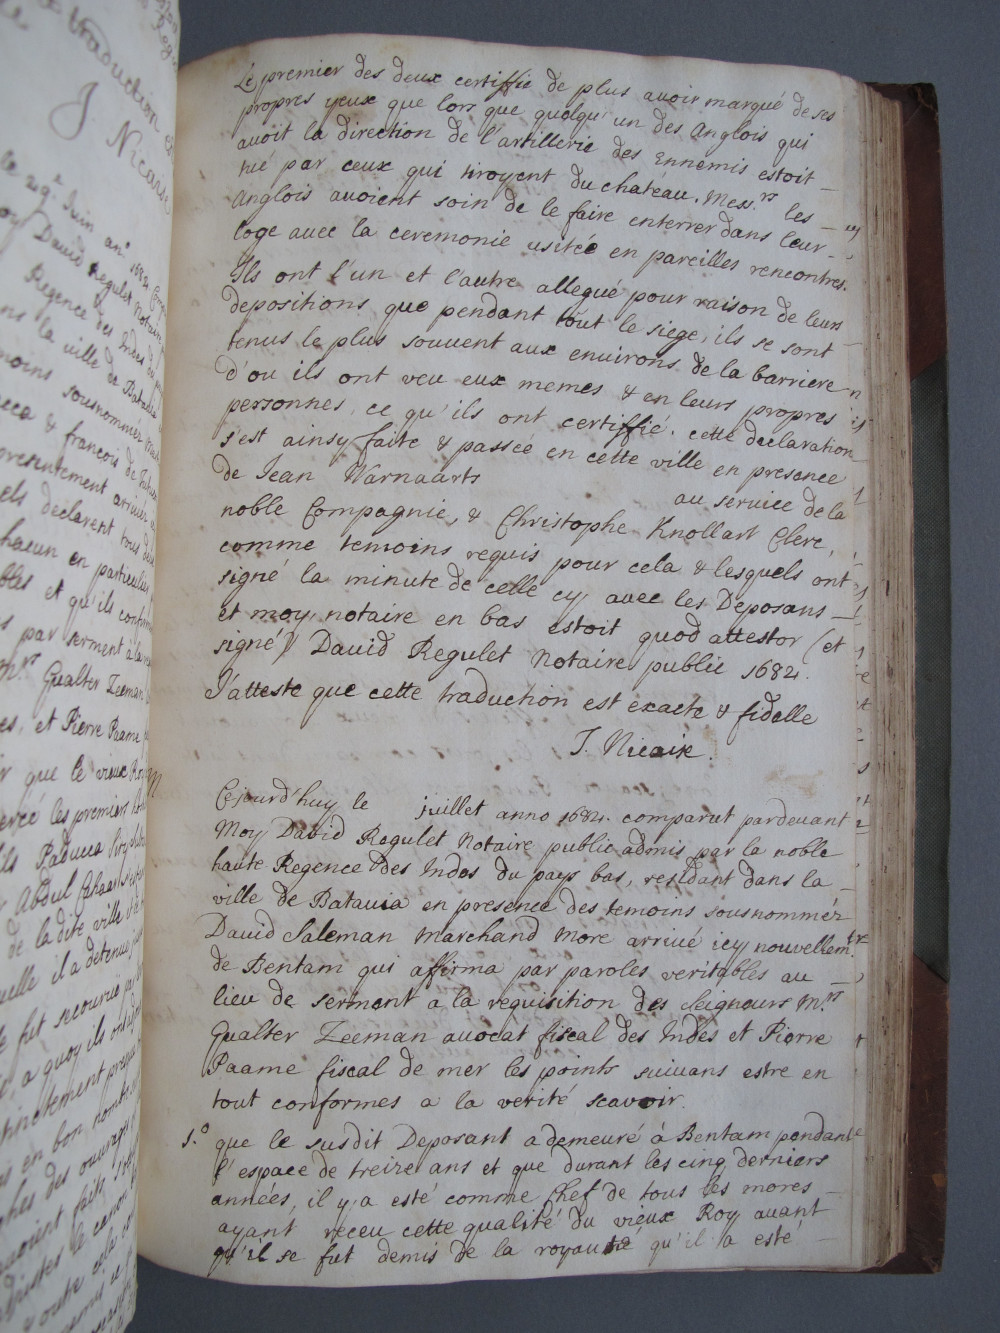 Le premier des deux certiffie de plus avoir marqué de ses
propres yeux que lors que quelqu'un des Anglois qui
avoit la direction de l'artillerie des Ennemis estoit
tué par ceux qui tiroyent du chateau. Mess.rs les
Anglois avoient soin de le faire enterrer dans leur
loge avec la ceremonie usitée en pareilles rencontres.
Ils ont l'un et l'autre allegué pour raison de leurs
depositions que pendant tout le siege, ils se sont
tenus le plus souvent aux environs de la barriere
d'ou ils ont veu eux memes & en leurs propres
personnes, ce qu'ils ont certiffié. cette declaration
s'est ainsy faite & passée en cette ville en presance
de Jean Warnaarts au service de la
noble Compagnie, & Christophe Knollart Clerc,
comme temoins requis pour cela & lesquels ont
signé la minute de celle cy avec les Deposans
et moy notaire en bas estoit quod attestor (et
signé) David Regulet Notaire public 1682.
J'atteste que cette traduction est exacte & fidelle
J. Nicaise.
Cejourd'huy le juillet anno 1682. comparut pardevant
Moy David Regulet Notaire public admis par la noble
haute Regence des Indes du pays bas, residant dans la
ville de Batavia en presence des temoins sousnomméz
David Saleman Marchand More arrivé icy nouvellem.t
de Bentam qui affirma par paroles veritables au
lieu de serment a la requisition des Seigneurs M.rs
Gualter Zeeman avocat fiscal des Indes et Pierre
Paame fiscal de mer les points suivans estre en
tout conformes a la verité scavoir.
1.o que le susdit Deposant a demeuré à Bentam pendant
l'espace de treize ans et que durant les cinq derniers
années, il y a esté comme Chef de tous les mores
ayant receu cette qualité du vieux Roy avant
qu'il se fut demis de la royauté qu'il a esté